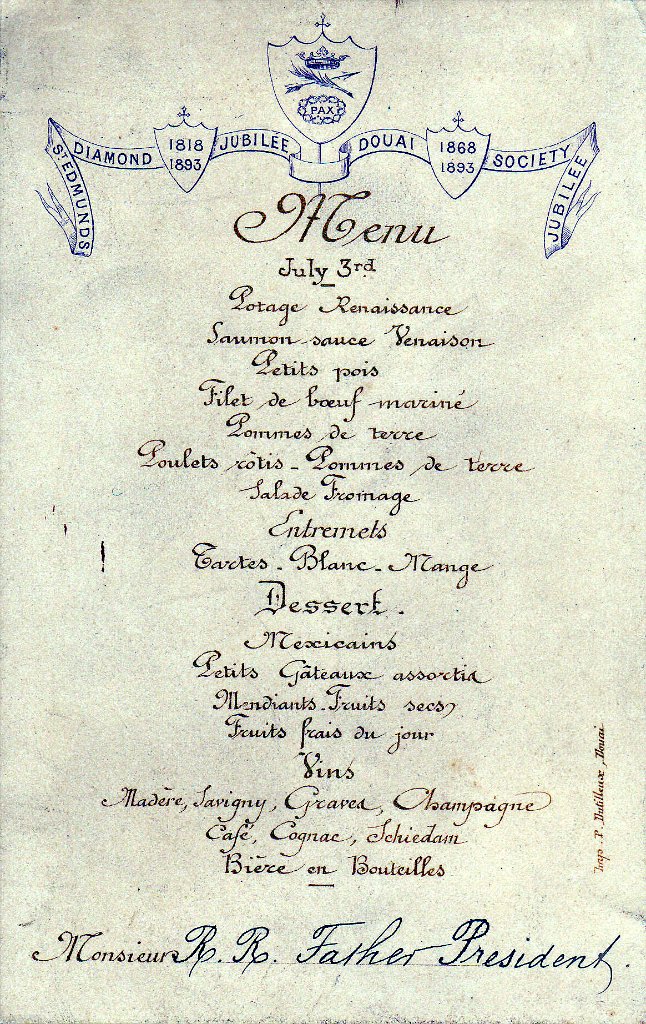 PAX
St EDMUNDS
DIAMOND
1818
1893
JUBILEE
DOUAI
1868
1893
SOCIETY
JUBILEE
Menu
July 3rd
Potage Renaissance
Saumon sauce Venaison
Petits pois
Filet de bœuf mariné
Pommes de terre
Poulets rôtis - Pommes de terre
Salade Fromage
Entremets
Tartes - Blanc - Mange
Dessert.
Mexicains
Petits Gâteaux assortis
Mendiants - Fruits secs
Fruits frais du jour
Vins
Madère, Savigny, Graves, Champagne
Café, Cognac, Schiedam
Bière en Bouteilles
Imp P. Dutilleux, Douai
Monsieur R. R. Father President.